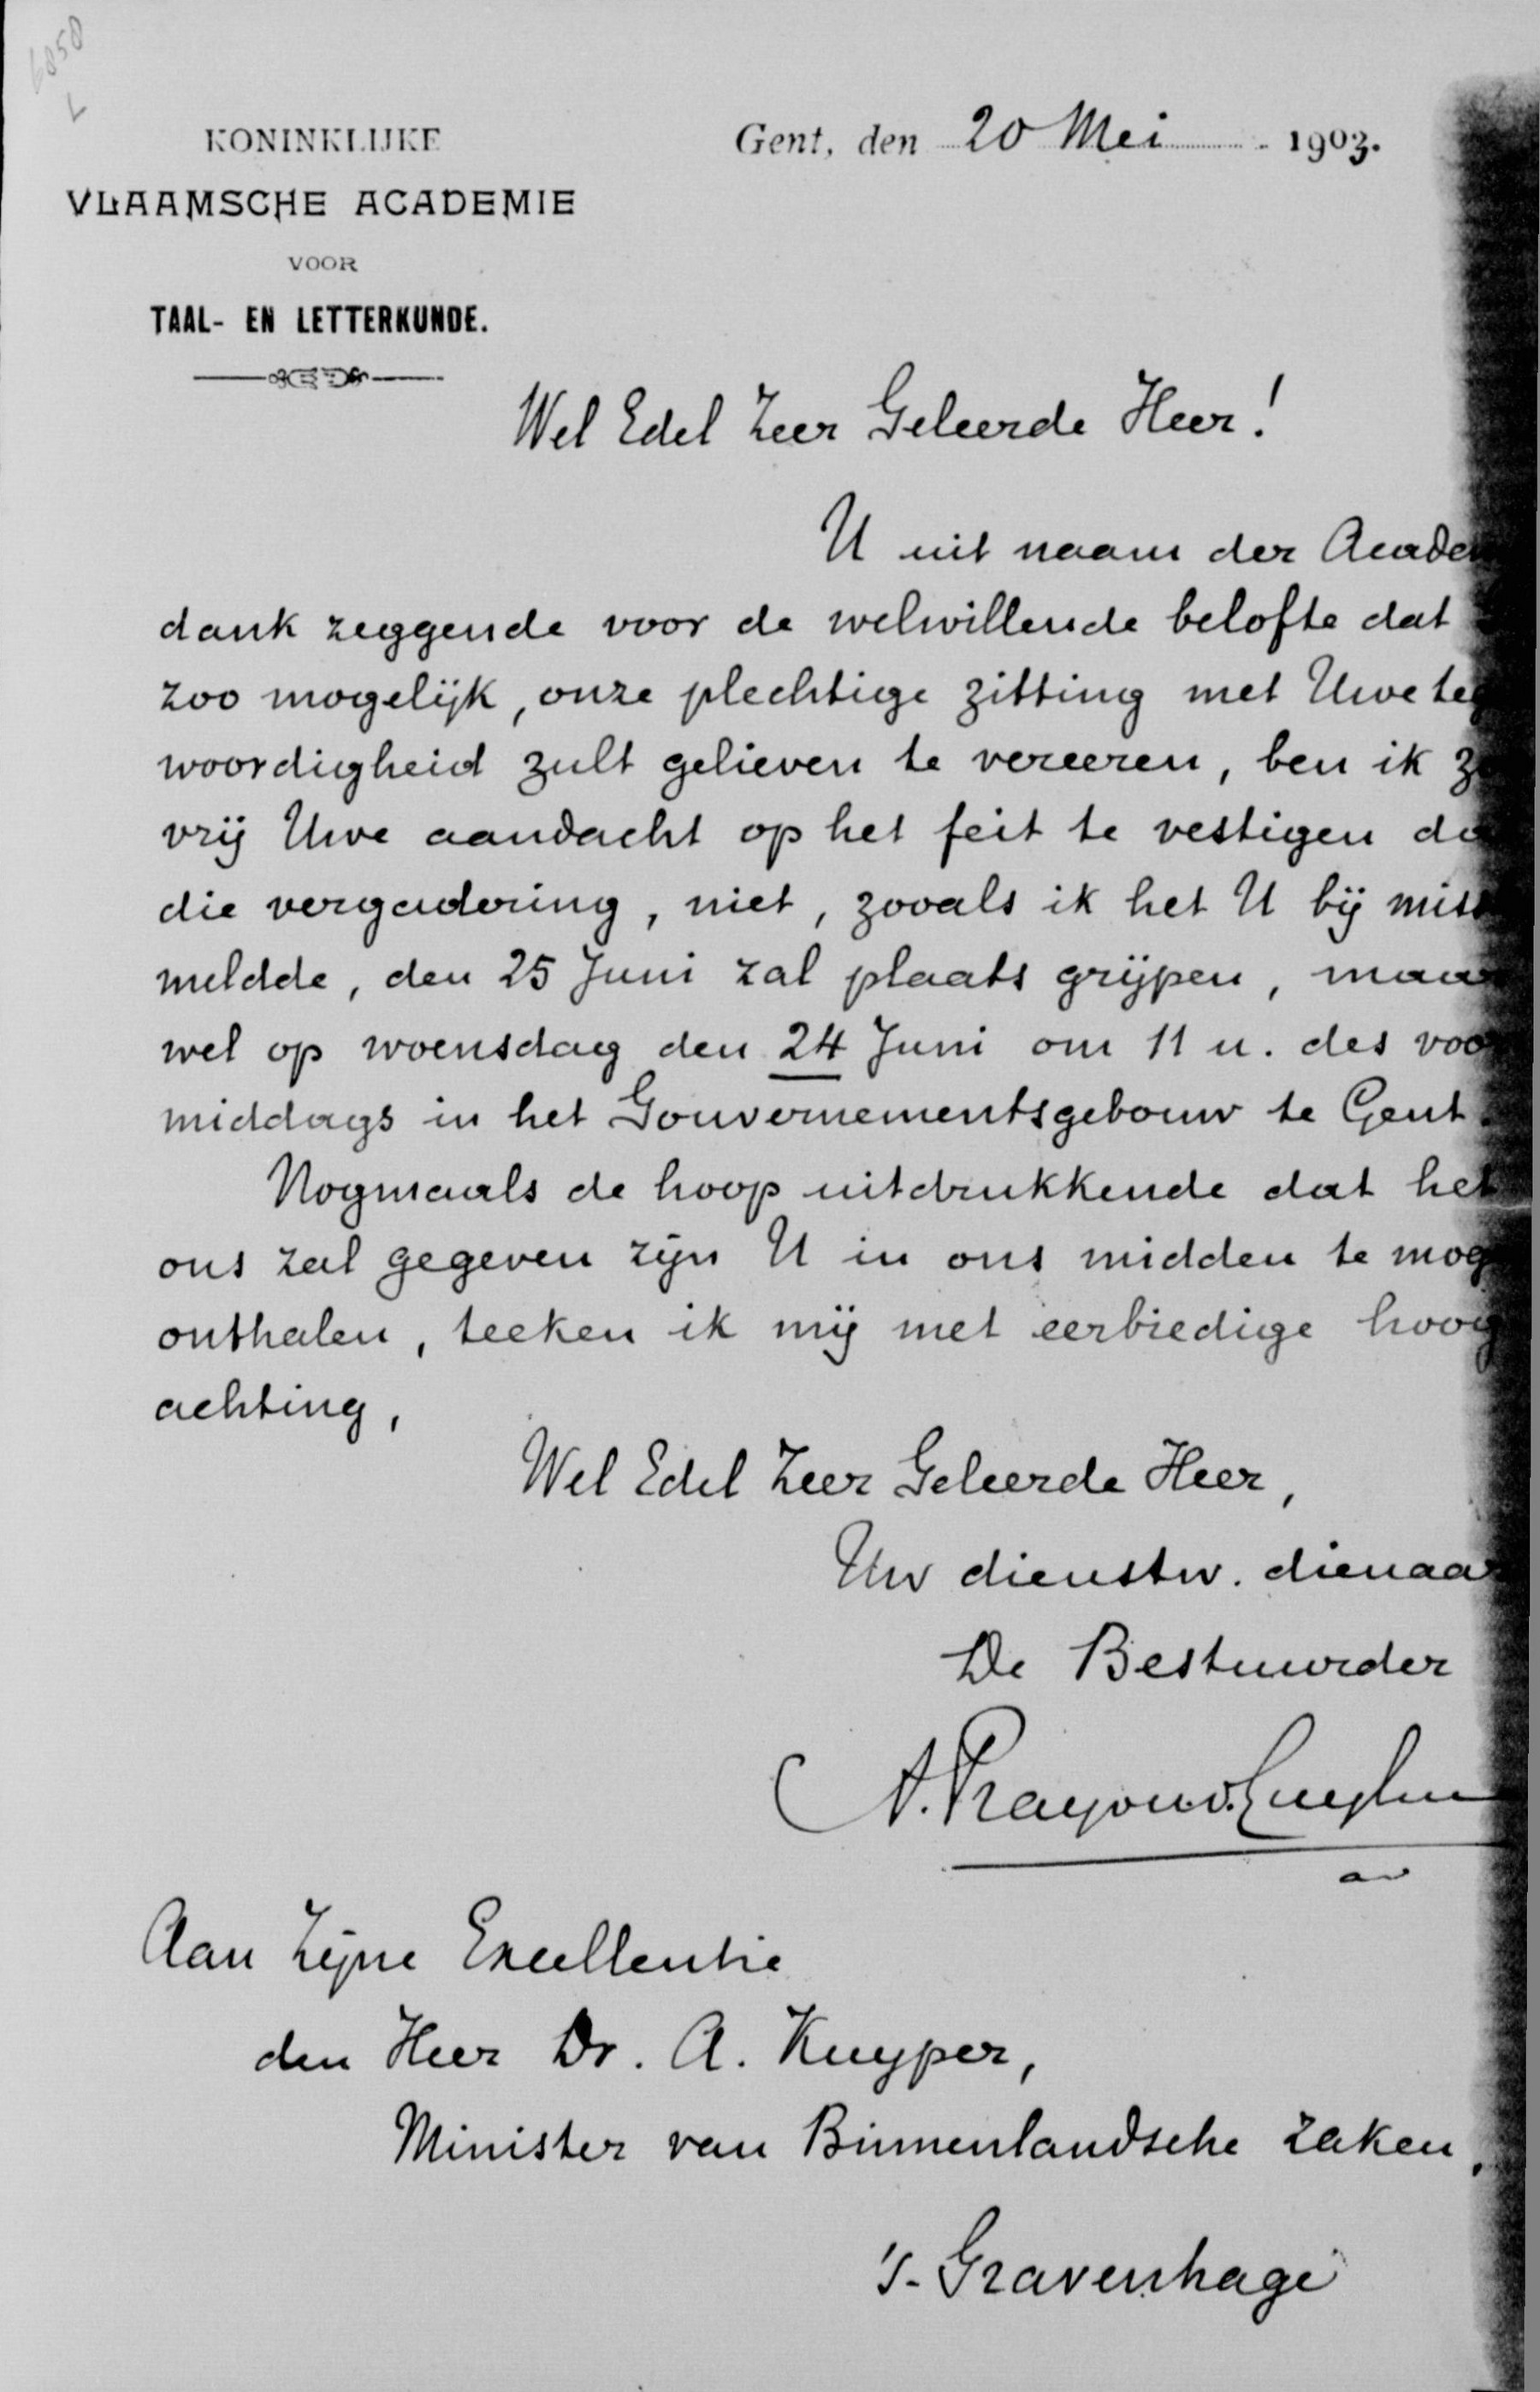 6858
L
KONINKLIJKE
VLAAMSCHE ACADEMIE
VOOR
TAAL- EN LETTERKUNDE.
Gent, den 20 Mei 1903.
Wel Edel Zeer Geleerde Heer!
U uit naam der Acade
dank zeggende voor de welwillende belofte dat
zoo mogelijk, onze plechtige zitting met Uwe teg
woordigheid zult gelieven te vereeren, ben ik zo
vrij Uwe aandacht op het feit te vestigen da
die vergadering, niet, zooals ik het U bij miss
meldde, den 25 Juni zal plaats grijpen, maar
wel op woensdag den 24 Juni om 11 u. des voor
middags in het Gouvernementsgebouw te Gent.
Nogmaals de hoop uitdrukkende dat het
ons zal gegeven zijn U in ons midden te mog
onthalen, teeken ik mij met eerbiedige hoog
achting,
Wel Edel Zeer Geleerde Heer,
Uw dienstw. dienaar
De Bestuurder
A. Prayon v. Zuylen
Aan Zijne Excellentie
den Heer Dr. A. Kuyper,
Minister van Binnenlandsche zaken,
'S-Gravenhage